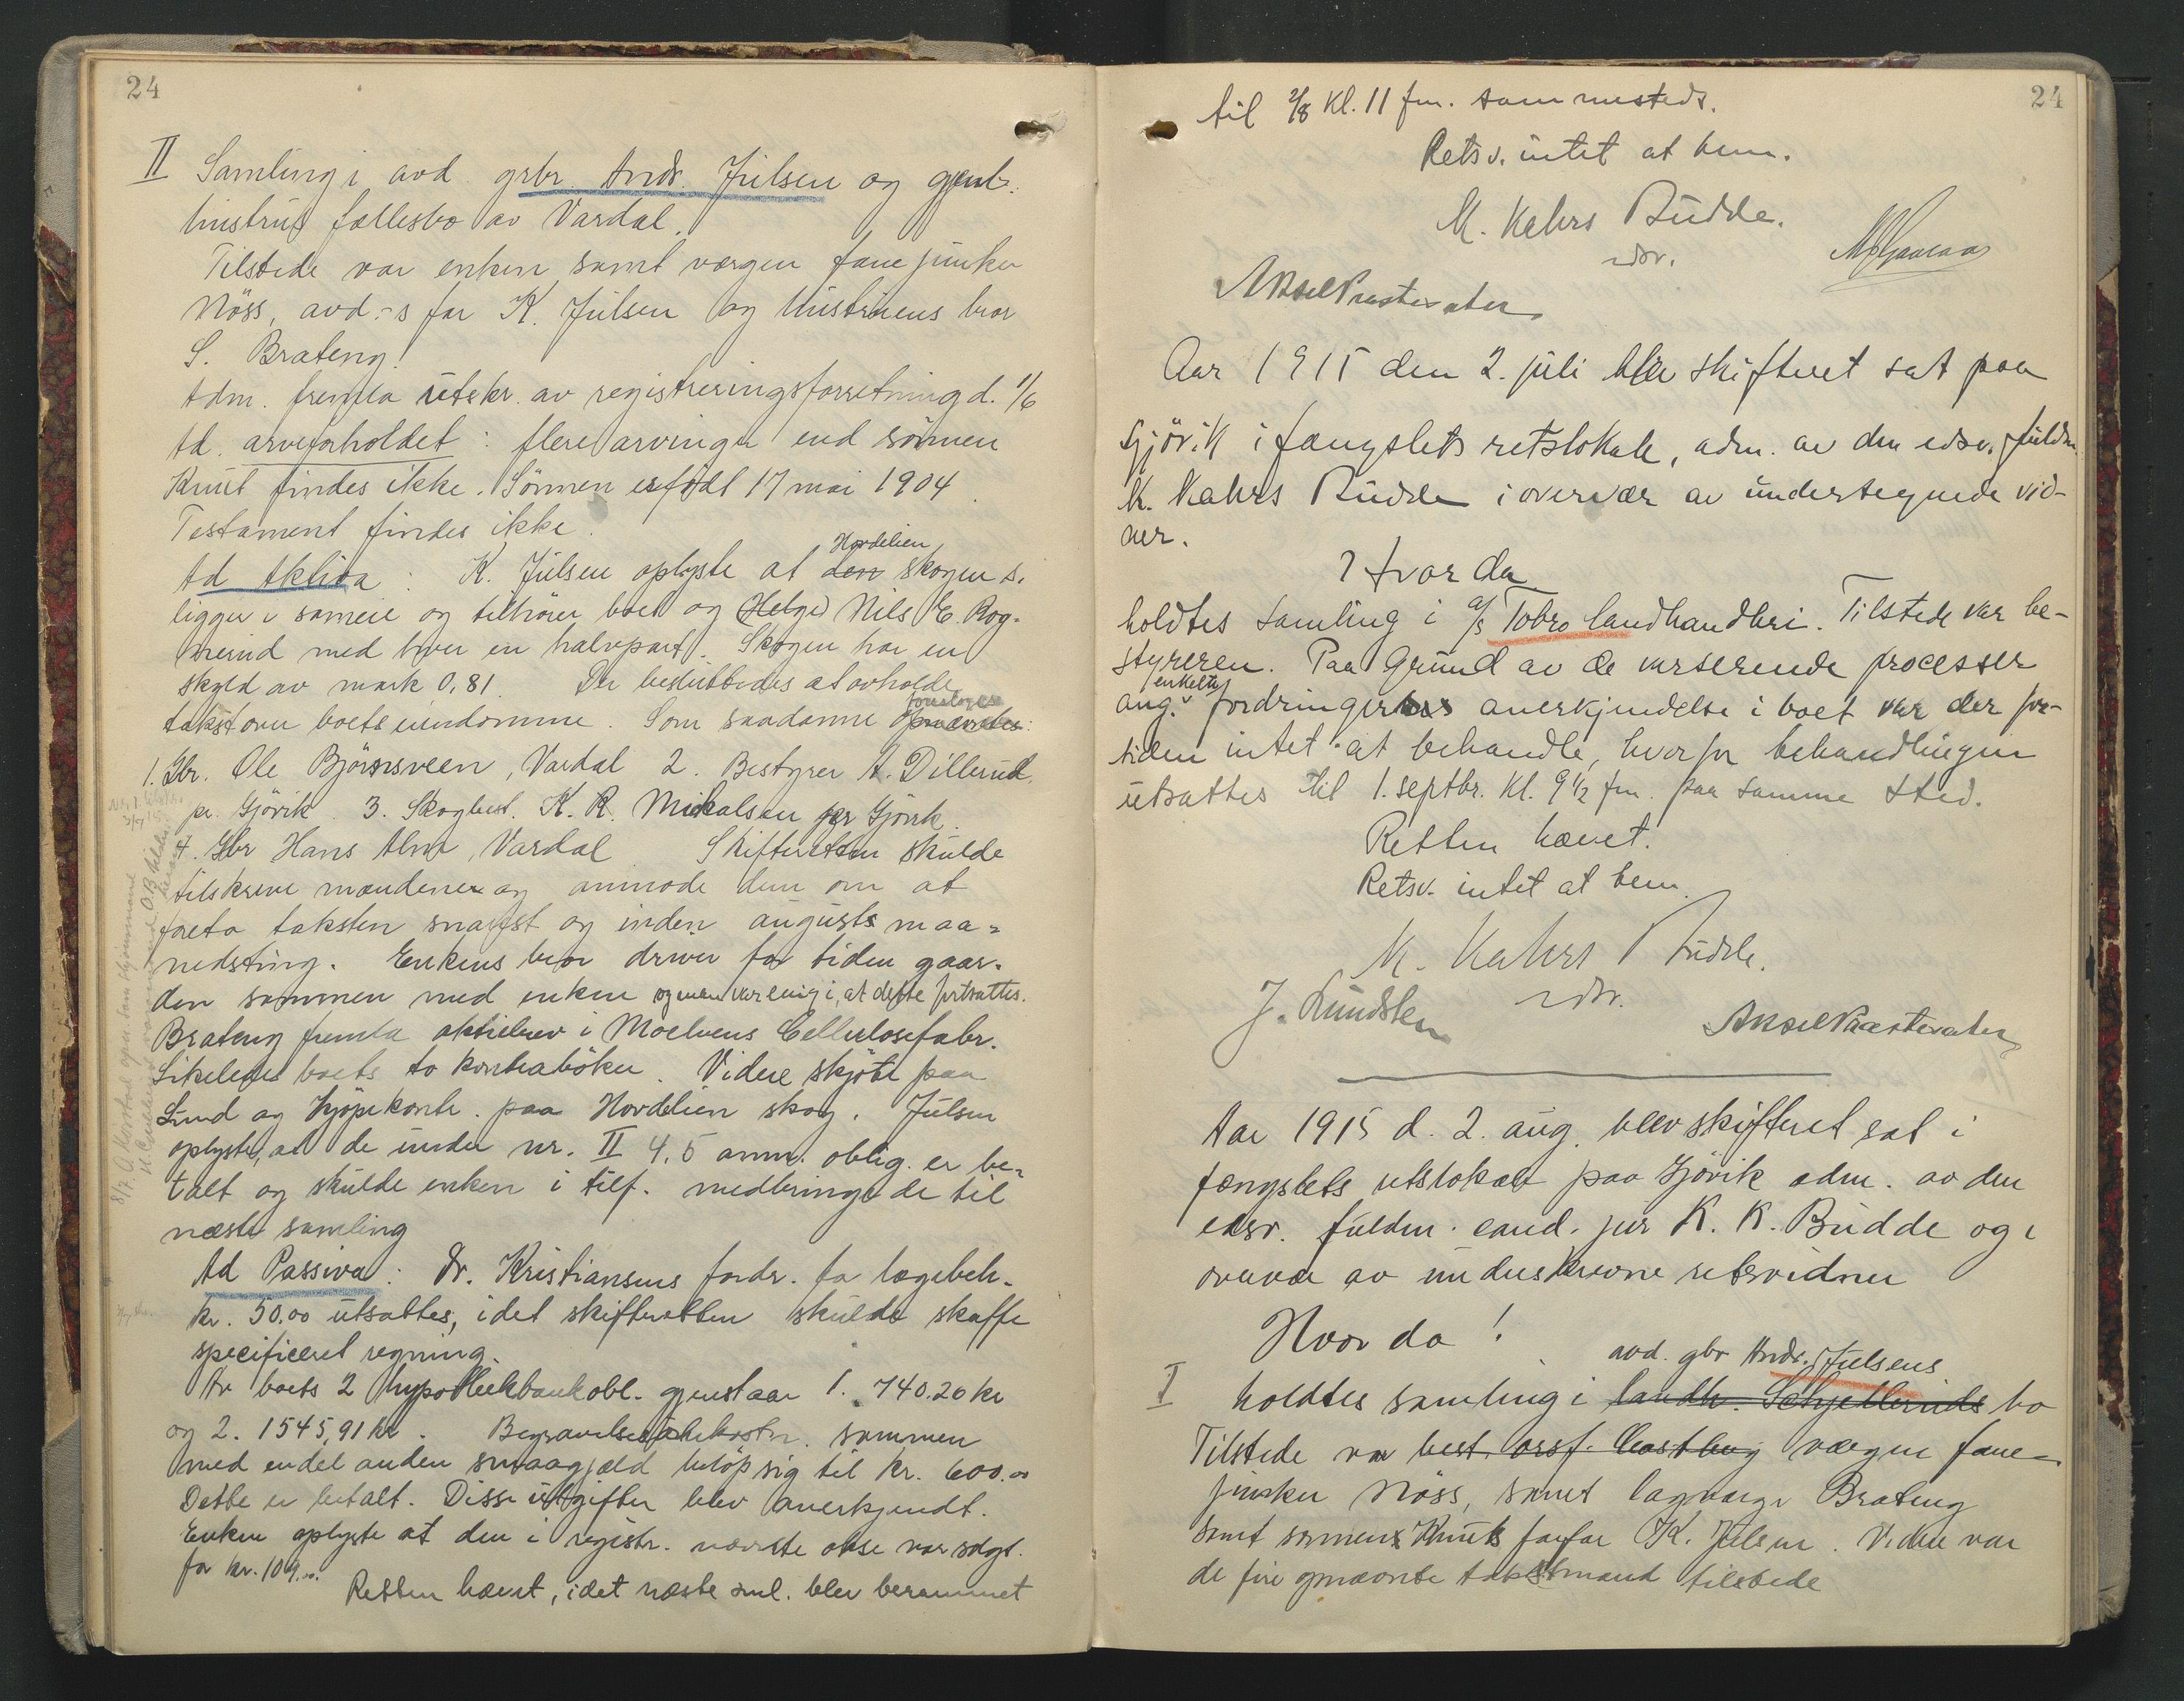 24
II Samling i avd. grbr Andr. Julsen og gjenl.
hustrus fællesbo av Vardal.
Tilstede var enken samt værgen fanejunker
Nöss, avd.-s far K. Julsen og hustruens bror
S. Brateng.
Adm. fremla utskr. av registreringsforretning d. 1/6
Ad. arveforholdet: flere arvinger end sönnen
Knut findes ikke. Sönnen er födt 17 mai 1904.
Testament findes ikke.
Ad Aktiva: K. Julsen oplyste at den Hordelien skogen s.
ligger i sameie og tilhörer boet og (Helge) Nils E. Rog-
nerud med hver en halvpart. Skogen har en
skyld av mark 0,81. Der besluttedes at avholde
takst over boets eiendomme. Som saadanne opnævntes foresloges:
1. Gbr. Ole Björnsveen, Vardal 2. Bestyrer A. Dillerud
pr. Gjövik 3. Skogbest. K. R. Mickalsen per Gjövik.
4. Gbr Hans Alm, Vardal. Skifteretten skulde
tilskrive mændene og anmode dem om at
foreta taksten snarest og inden augusts maa-
nedsting. Enkens bror driver for tiden gaar-
den sammen med enken og man var enig i, at dette fortsattes.
Brateng fremla aktiebrev i Moelvens Cellulosefabr.
Likeledes boets to kontraböker. Videre skjöte paa
Lund og kjöpekontr. paa Hordelien skog. Julsen
oplyste, at de under nr. II 4, 5 anm. oblig. er be-
talt og skulde enken i tilf. medbringe de til
næste samling
Ad Passiva: Dr. Kristiansens fordr. for lægebeh.
kr. 50.00 utsattes, idet skifteretten skulde skaffe
specificeret regning.
Av boets 2 hypothekbankobl. gjenstaar 1. 740.26 kr
og 2. 1545,91 kr. Begravelsesomkostn. sammen
med endel anden smaagjæld belöp sig til kr. 600.00
Dette er betalt. Disse utgifter blev anerkjendt.
Enken oplyste at den i registr. nævnte okse var solgt
for kr. 109.00.
Retten hævet, idet næste saml. blev berammet
24
til 2/8 kl. 11 fm. sammesteds.
Retsv. intet at bem.
K. Kahrs Budde.
edsv.
Aksel Præstesæter
Aar 1915 den 2. juli blev skifteret sat paa
Gjövik i fængslets retslokale, adm. av den edsv. fuldm
K. Kahrs Budde i overvær av undertegnede vid-
ner.
Hvor da
holdtes samling i a/s Tobro landhandleri. Tilstede var be-
styreren. Paa grund av de verserende processer
ang. enkelte fordringers anerkjendelse i boet var der for-
tiden intet at behandle, hvorfor behandlingen
utsattes til 1. septbr. kl. 9 1/2 fm. paa samme sted.
Retten hævet.
Retsv. intet at bem.
K. Kahrs Budde.
edsv.
J. Lundsten
Aksel Præstesæter
Aar 1915 d. 2. aug. blev skifteret sat i
fængslets retslokale paa Gjövik adm. av den
edsv. fuldm. cand. jur K. K. Budde og i
overvær av underskrevne retsvidner
Hvor da!
avd. gbr Andr. Julsens
I holdtes samling i landh. Schjelleruds bo
Tilstede var best. orsf. Castberg værgen fane-
junker Nöss, samt lagværge Brateng
samt sönnens Knuts farfar K. Julsen. Videre var
de fire opnævnte takstmænd tilstede